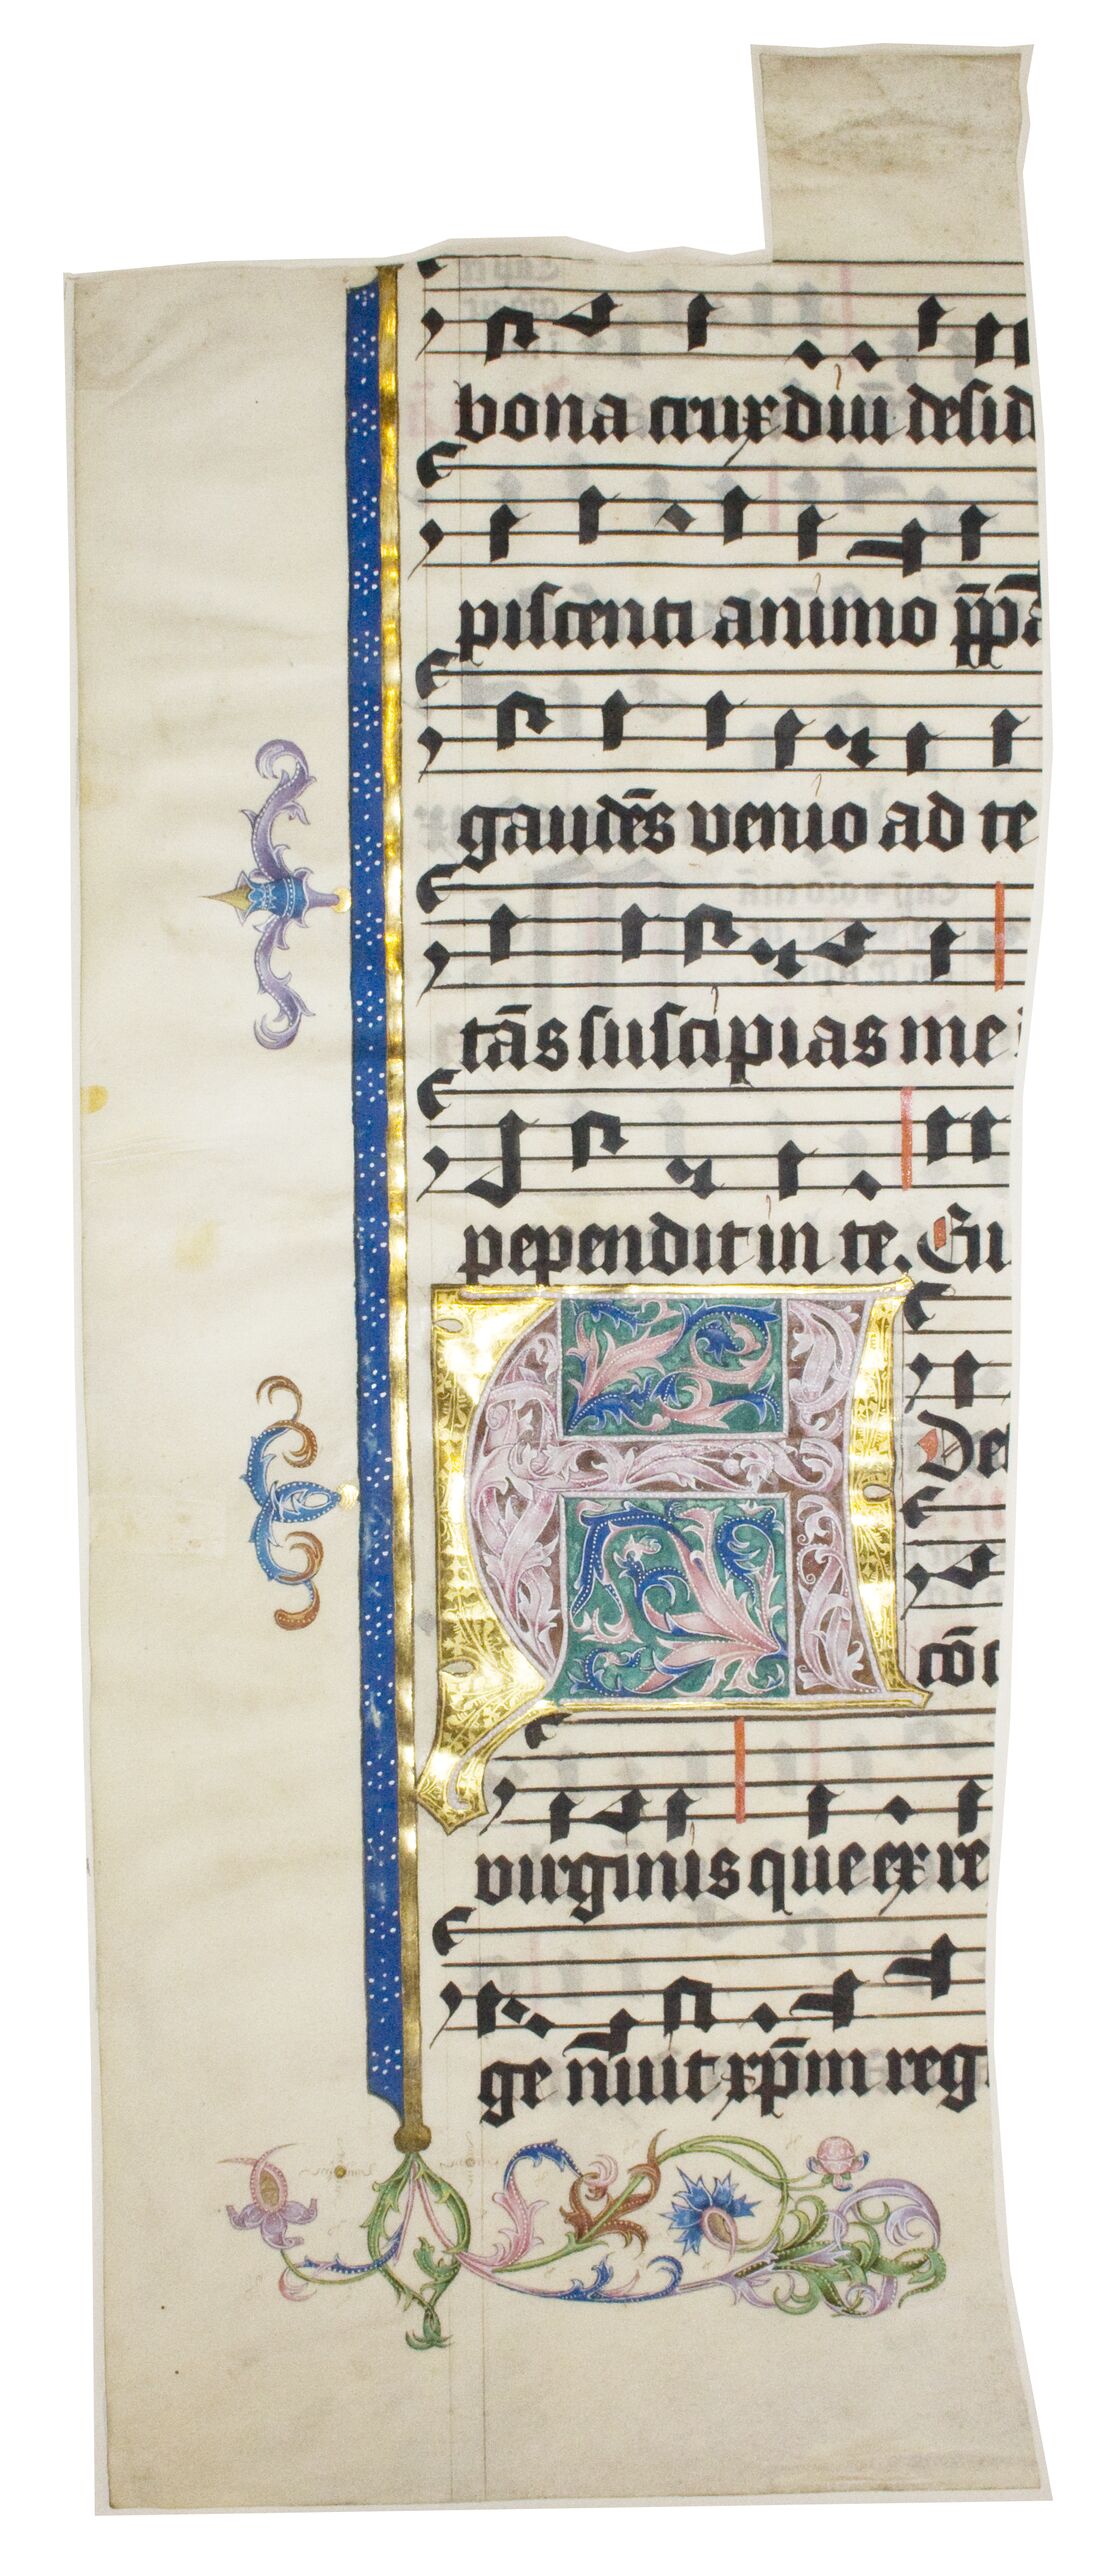 bona crux diu desid
piscenti animo p̄p̄a
gaudēs venio ad te
tās suscipias me
pependit in te. Cu
A
De
cōc
virginis que ex re
ge n̄uit xp̄m reg